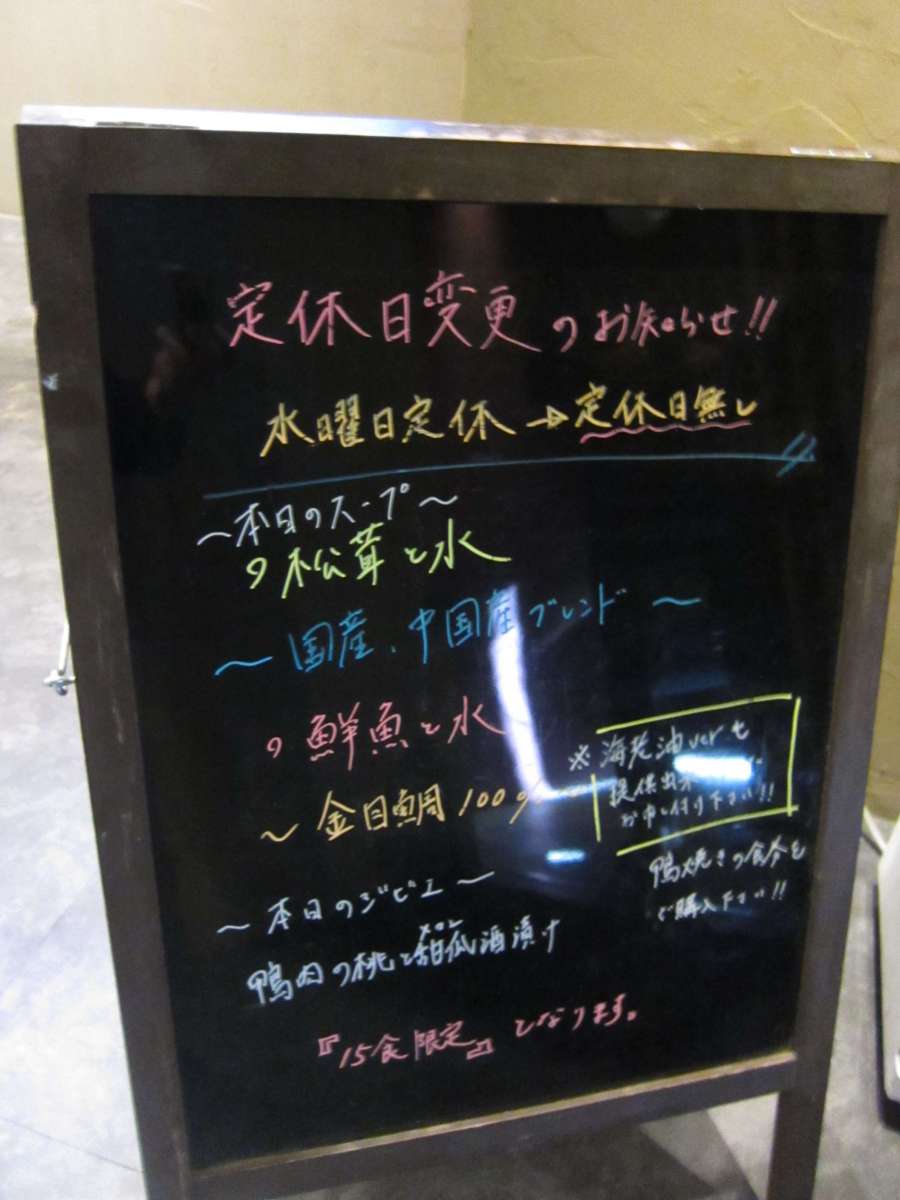 定休日変更のお知らせ!!
水曜日定休→定休日無し
～本日のスープ～
松茸と水
～国産、中国産ブレンド～
鮮魚と水
～金目鯛100%
※海老油verも
提供出来
お申し付け下さい!!
～本日のジビエ～
鴨焼きの食券を
ご購入下さい!!
メロン
鴨肉の桃と甜瓜酒漬け
『15食限定』となります。